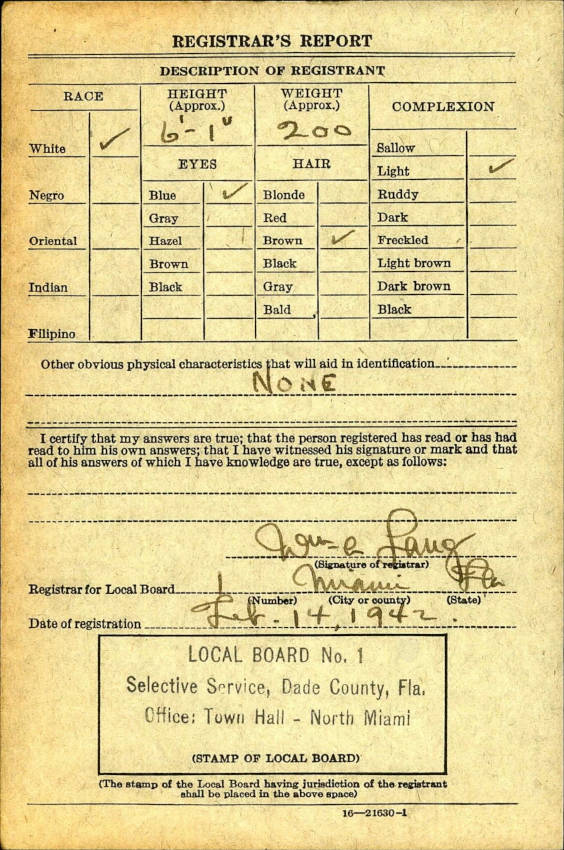 REGISTRAR'S REPORT
DESCRIPTION OF REGISTRANT
RACE
HEIGHT (Approx.)
WEIGHT (Approx.)
COMPLEXION
6'-1"
200
White ✓
Sallow
EYES
HAIR
Light ✓
Negro
Blue ✓
Blonde
Ruddy
Gray
Red
Dark
Oriental
Hazel
Brown ✓
Freckled
Brown
Black
Light brown
Indian
Black
Gray
Dark brown
Bald
Black
Filipino
Other obvious physical characteristics that will aid in identification
NONE
I certify that my answers are true; that the person registered has read or has had
read to him his own answers; that I have witnessed his signature or mark and that
all of his answers of which I have knowledge are true, except as follows:
Lang
(Signature of registrar)
Registrar for Local Board 1 Miami Fla
(Number) (City or county) (State)
Date of registration Feb. 14, 1942.
LOCAL BOARD No. 1
Selective Service, Dade County, Fla.
Office: Town Hall - North Miami
(STAMP OF LOCAL BOARD)
(The stamp of the Local Board having jurisdiction of the registrant
shall be placed in the above space)
16—21630-1